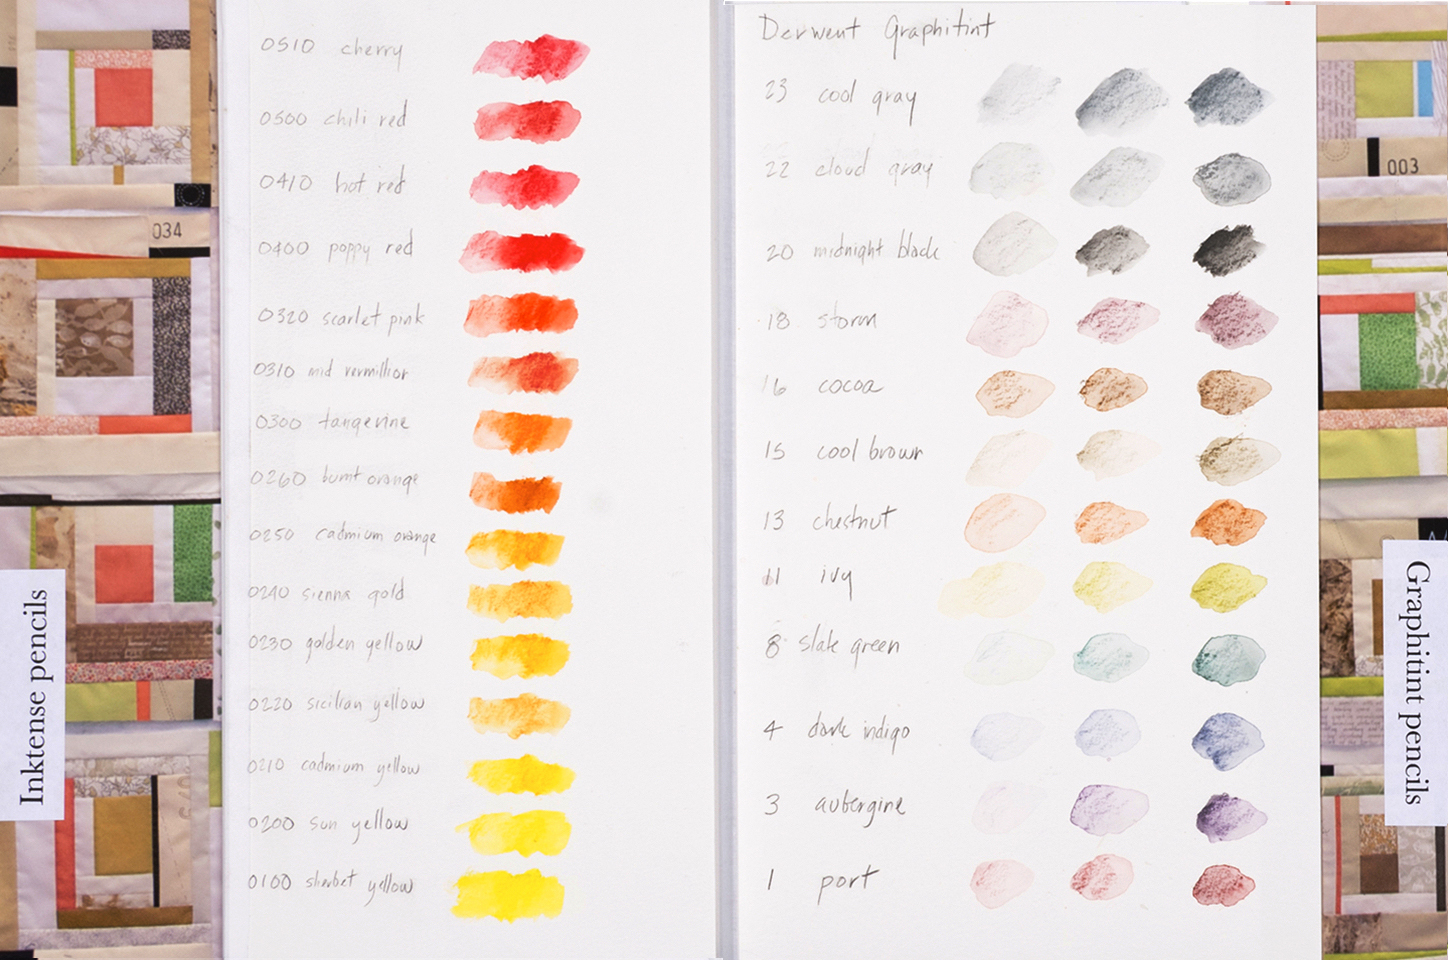 0510 cherry
0500 chili red
0410 hot red
0400 poppy red
0320 scarlet pink
0310 mid vermillion
0300 tangerine
0260 burnt orange
0250 cadmium orange
0240 sienna gold
0230 golden yellow
0220 sicilian yellow
0210 cadmium yellow
0200 sun yellow
0100 sherbet yellow
034
Inktense pencils
Derwent Graphitint
23 cool gray
22 cloud gray
20 midnight black
18 storm
16 cocoa
15 cool brown
13 chestnut
11 ivy
8 slate green
4 dark indigo
3 aubergine
1 port
003
Graphitint pencils